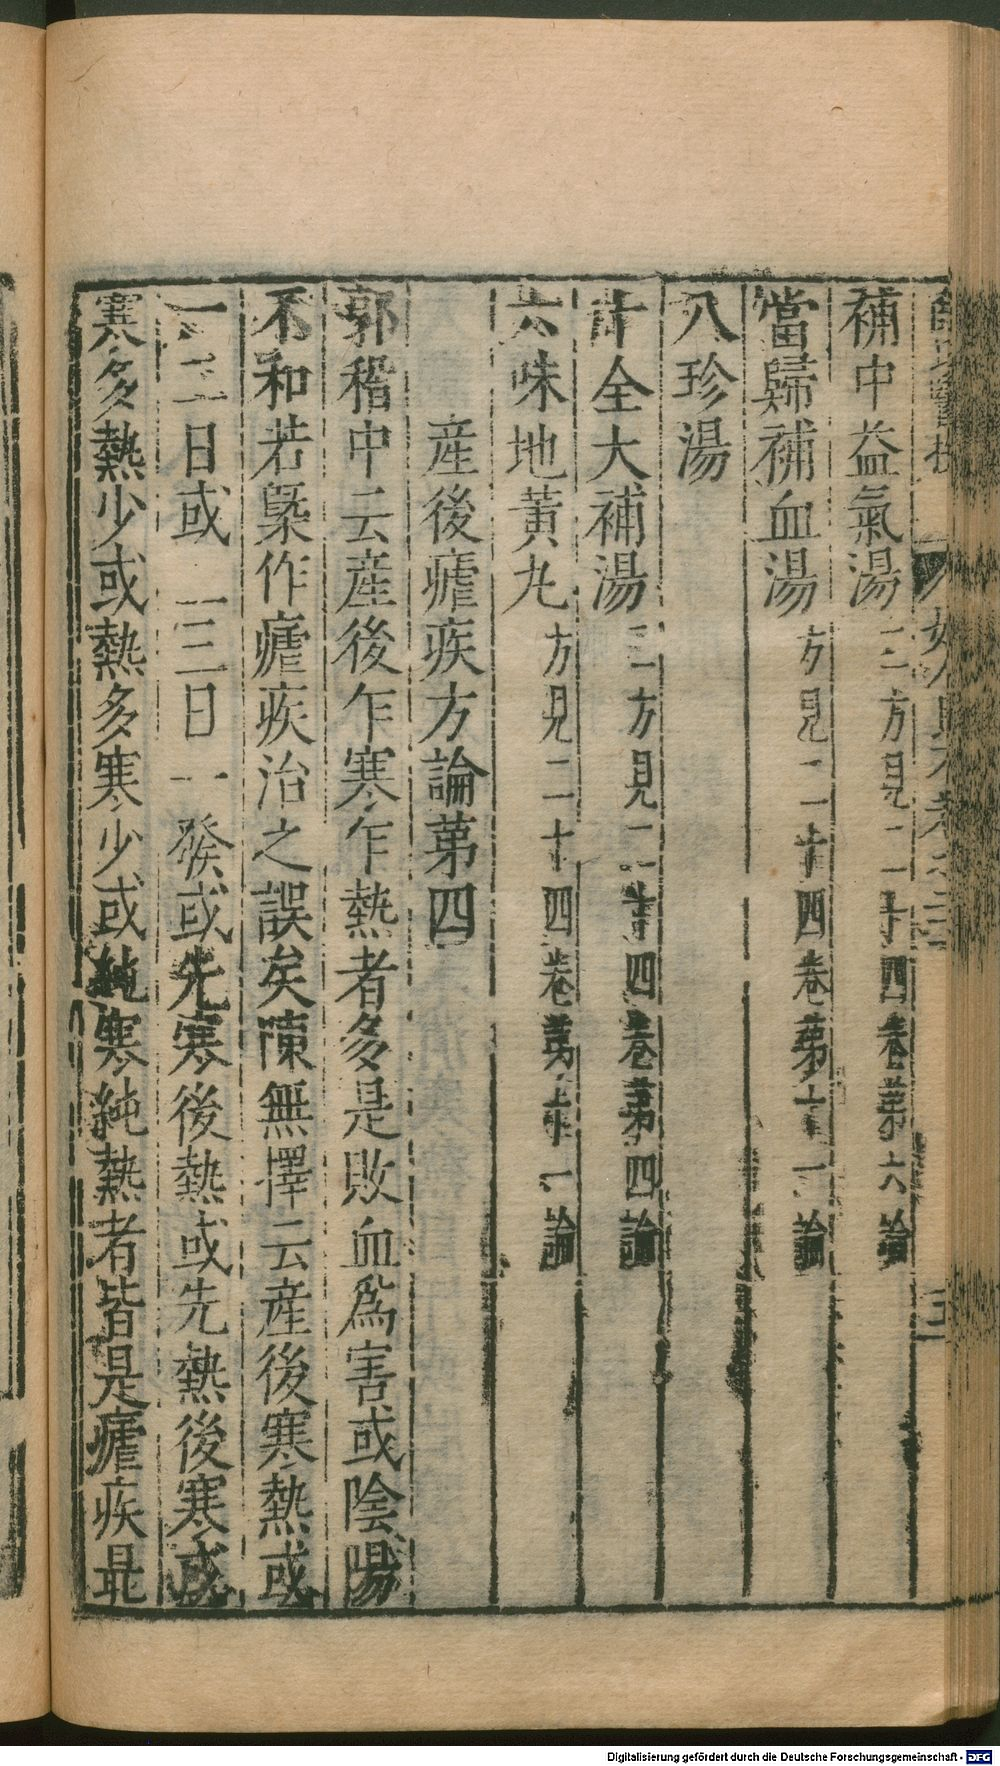 補中益氣湯 二方見二十四卷第六論
當歸補血湯 方見二十四卷第十一論
八珍湯
十全大補湯 二方見二十四卷第四論
六味地黃丸 方見二十四卷第十一論
産後瘧疾方論第四
郭稽中云産後乍寒乍熱者多是敗血爲害或陰陽
不和若槩作瘧疾治之誤矣陳無擇云産後寒熱或
一二日或二三日一發或先寒後熱或先熱後寒或
寒多熱少或熱多寒少或純寒純熱者皆是瘧疾最
Digitalisierung gefördert durch die Deutsche Forschungsgemeinschaft - DFG